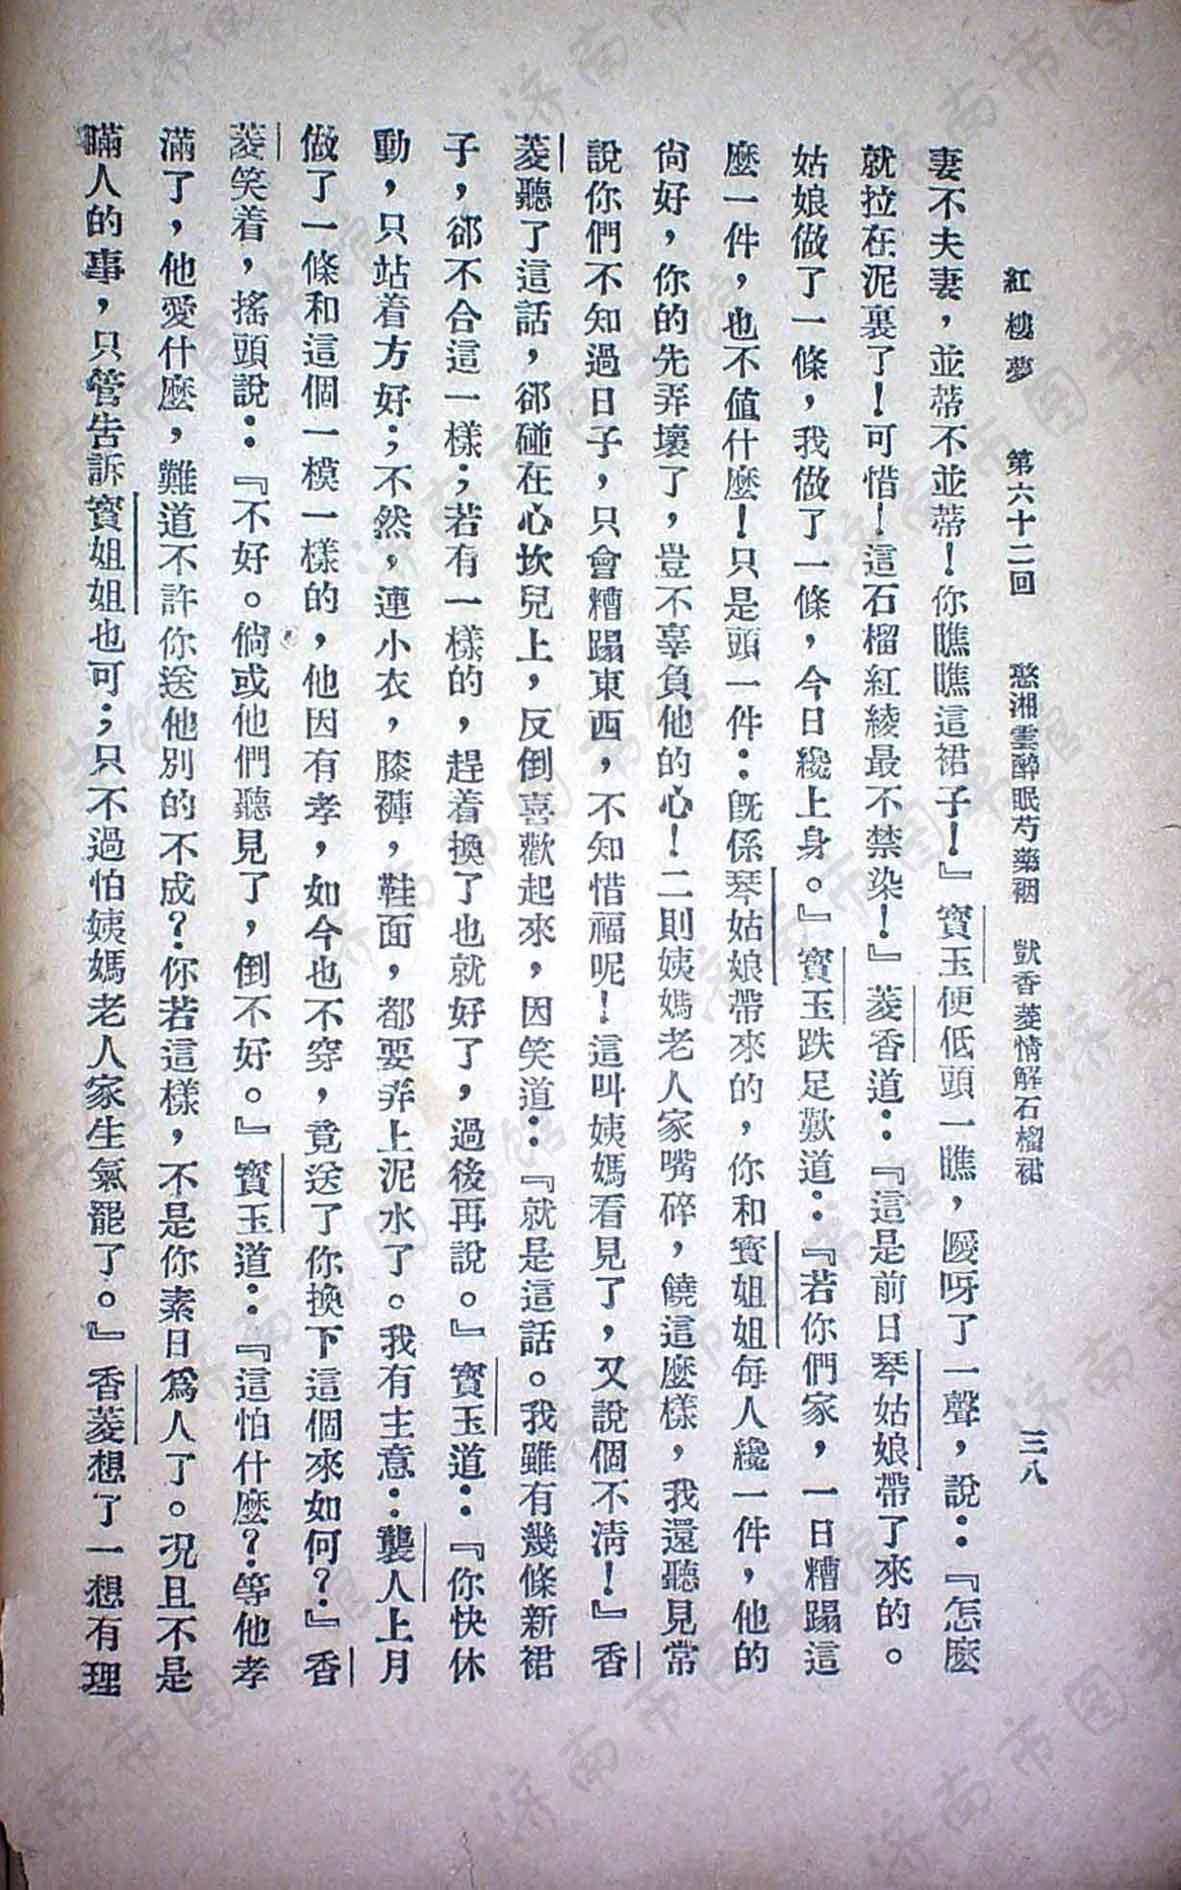 紅樓夢　第六十二回　憨湘雲醉眠芍藥裀　獃香菱情解石榴裙　三八
妻不夫妻，並蒂不並蒂！你瞧瞧這裙子！』寶玉便低頭一瞧，噯呀了一聲，說：『怎麼
就拉在泥裏了！可惜！這石榴紅綾最不禁染！』菱香道：『這是前日琴姑娘帶了來的。
姑娘做了一條，我做了一條，今日纔上身。』寶玉跌足歎道：『若你們家，一日糟蹋這
麼一件，也不值什麼！只是頭一件：旣係琴姑娘帶來的，你和寶姐姐每人纔一件，他的
尙好，你的先弄壞了，豈不辜負他的心！二則姨媽老人家嘴碎，饒這麼樣，我還聽見常
說你們不知過日子，只會糟蹋東西，不知惜福呢！這叫姨媽看見了，又說個不淸！』香
菱聽了這話，郤碰在心坎兒上，反倒喜歡起來，因笑道：『就是這話。我雖有幾條新裙
子，郤不合這一樣；若有一樣的，趕着換了也就好了，過後再說。』寶玉道：『你快休
動，只站着方好；不然，連小衣，膝褲，鞋面，都要弄上泥水了。我有主意：襲人上月
做了一條和這個一模一樣的，他因有孝，如今也不穿，竟送了你換下這個來如何？』香
菱笑着，搖頭說：『不好。倘或他們聽見了，倒不好。』寶玉道：『這怕什麼？等他孝
滿了，他愛什麼，難道不許你送他別的不成？你若這樣，不是你素日爲人了。况且不是
瞞人的事，只管告訴寶姐姐也可；只不過怕姨媽老人家生氣罷了。』香菱想了一想有理
济南市图书馆